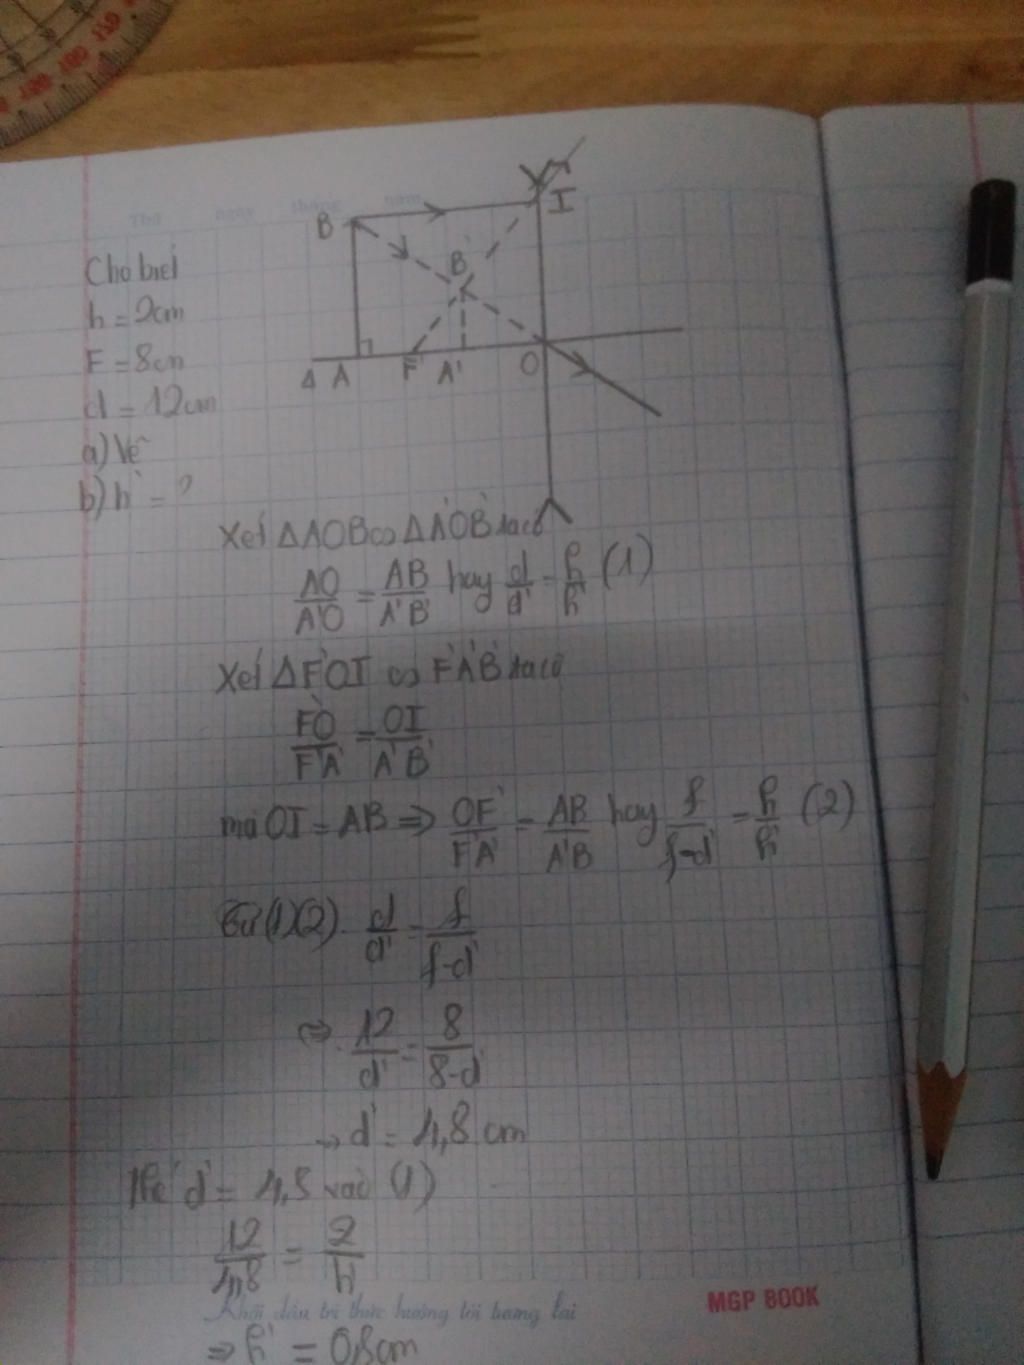 Thứ ngày tháng năm
B I
B'
Δ A F A' O
Cho biết
h = 2cm
F = 8cm
d = 12cm
a) Vẽ
b) h' = ?
Xét ΔAOB ∽ ΔA'OB' ta có
AO/A'O = AB/A'B' hay d/d' = h/h' (1)
Xét ΔF'OI ∽ F'A'B' ta có
F'O/F'A' = OI/A'B'
mà OI = AB => OF'/F'A' = AB/A'B hay f/f-d' = h/h' (2)
Từ (1)(2) d/d' = f/f-d'
⇔ 12/d' = 8/8-d'
→ d' = 4,8 cm
Thế d' = 4,8 vào (1)
12/4,8 = 2/h'
Khởi đầu tri thức hướng tới tương lai
MGP BOOK
=> h' = 0,8cm